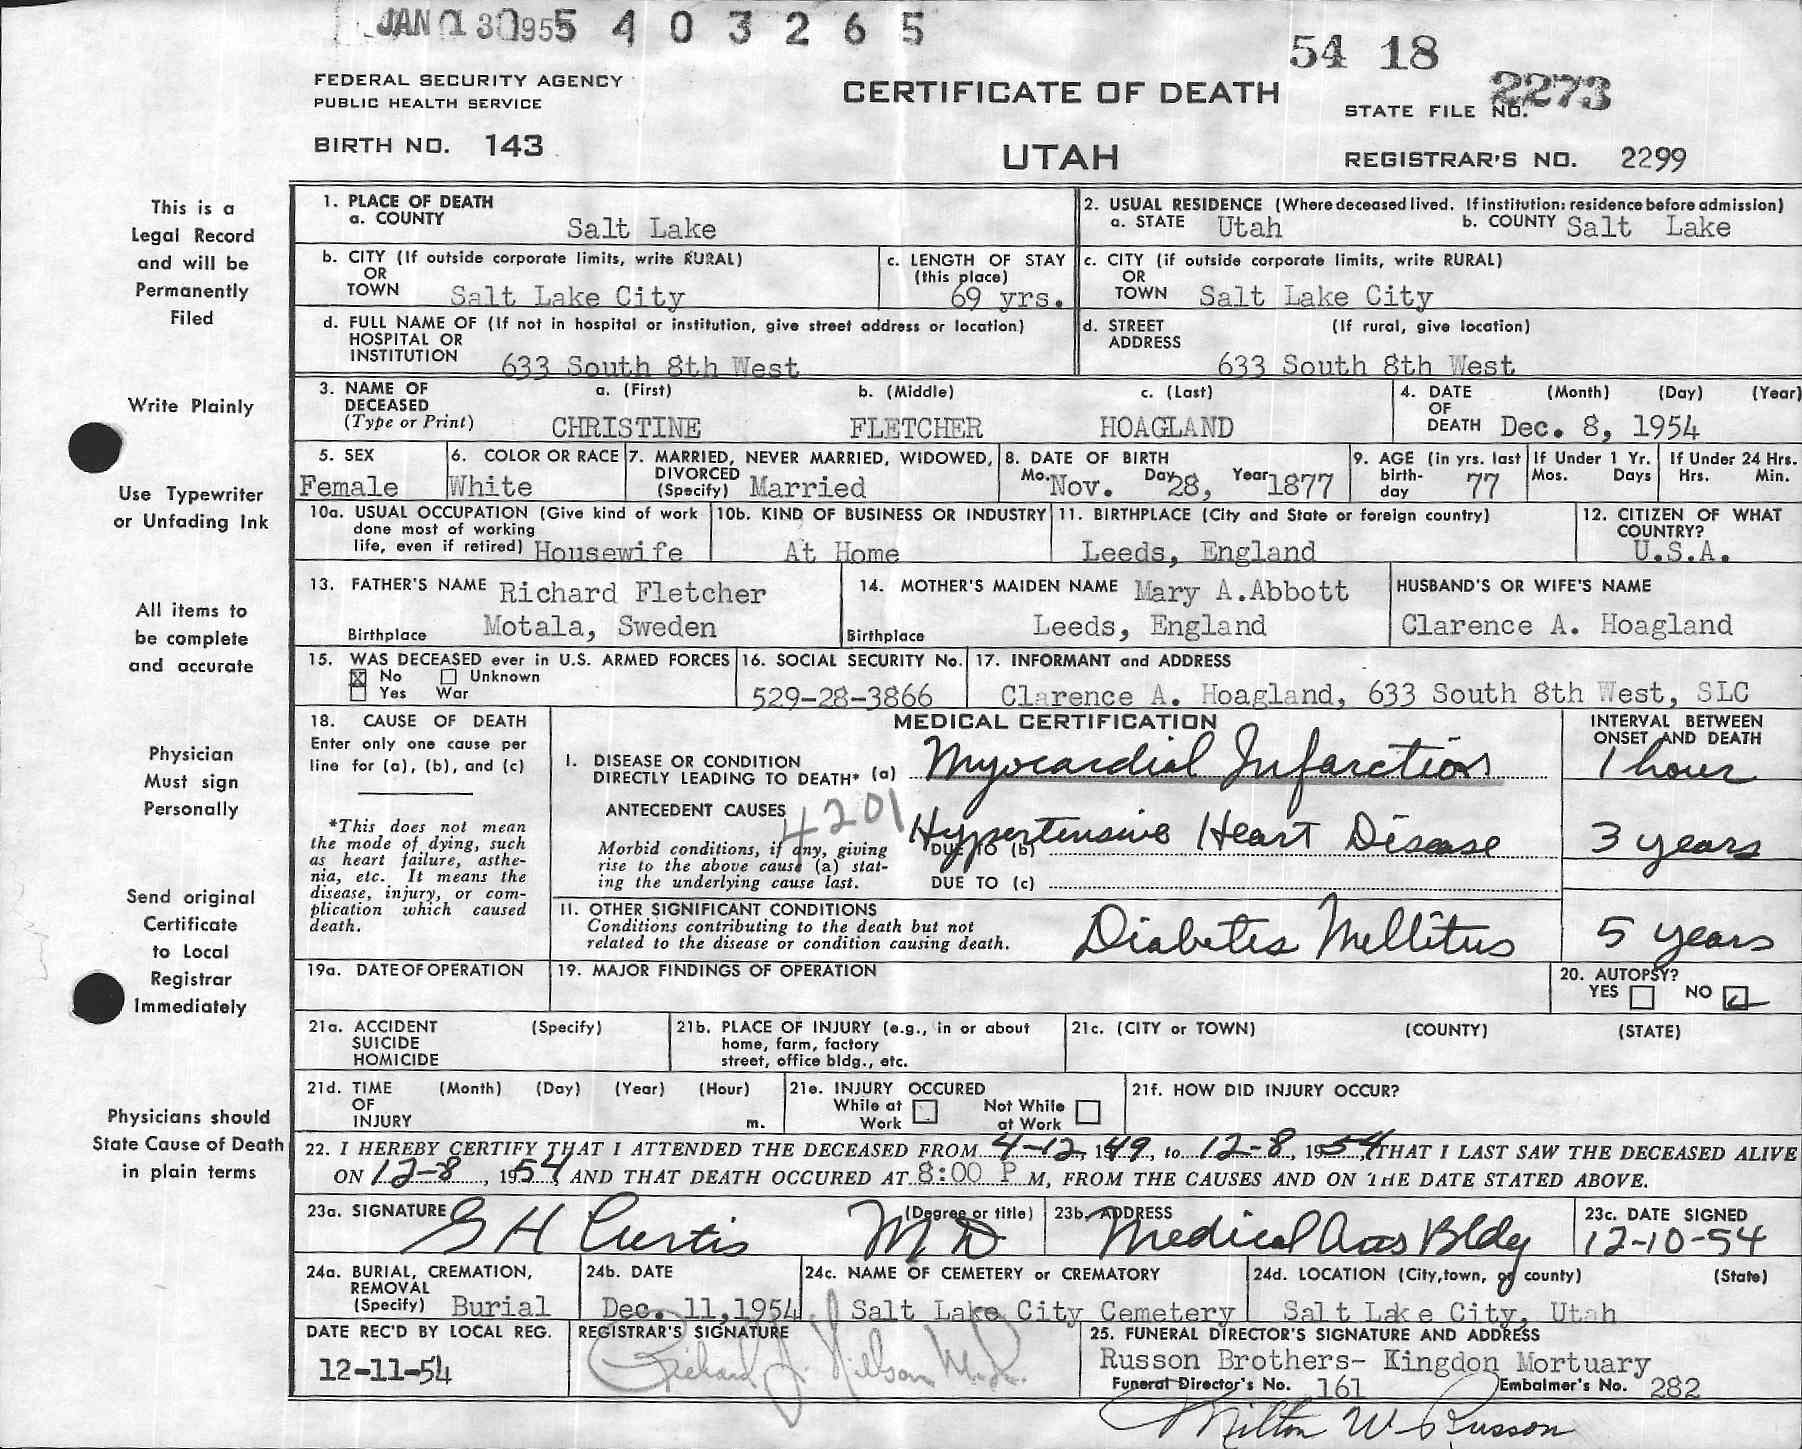 JAN 13 1955 5 4 0 3 2 6 5
54 18
FEDERAL SECURITY AGENCY
PUBLIC HEALTH SERVICE
CERTIFICATE OF DEATH
STATE FILE NO. 2273
BIRTH NO. 143
UTAH
REGISTRAR'S NO. 2299
This is a
Legal Record
and will be
Permanently
Filed
Write Plainly
Use Typewriter
or Unfading Ink
All items to
be complete
and accurate
Physician
Must sign
Personally
Send original
Certificate
to Local
Registrar
Immediately
Physicians should
State Cause of Death
in plain terms
1. PLACE OF DEATH
a. COUNTY Salt Lake
2. USUAL RESIDENCE (Where deceased lived. If institution: residence before admission)
a. STATE Utah b. COUNTY Salt Lake
b. CITY (If outside corporate limits, write RURAL)
OR
TOWN Salt Lake City
c. LENGTH OF STAY
(this place)
69 yrs.
c. CITY (if outside corporate limits, write RURAL)
OR
TOWN Salt Lake City
d. FULL NAME OF (If not in hospital or institution, give street address or location)
HOSPITAL OR
INSTITUTION 633 South 8th West
d. STREET (If rural, give location)
ADDRESS
633 South 8th West
3. NAME OF a. (First) b. (Middle) c. (Last)
DECEASED
(Type or Print) CHRISTINE FLETCHER HOAGLAND
4. DATE (Month) (Day) (Year)
OF
DEATH Dec. 8, 1954
5. SEX
Female
6. COLOR OR RACE
White
7. MARRIED, NEVER MARRIED, WIDOWED,
DIVORCED
(Specify) Married
8. DATE OF BIRTH
Mo. Nov. Day 28, Year 1877
9. AGE (in yrs. last
birth-
day 77
If Under 1 Yr.
Mos. Days
If Under 24 Hrs.
Hrs. Min.
10a. USUAL OCCUPATION (Give kind of work
done most of working
life, even if retired) Housewife
10b. KIND OF BUSINESS OR INDUSTRY
At Home
11. BIRTHPLACE (City and State or foreign country)
Leeds, England
12. CITIZEN OF WHAT
COUNTRY?
U.S.A.
13. FATHER'S NAME Richard Fletcher
Birthplace Motala, Sweden
14. MOTHER'S MAIDEN NAME Mary A.Abbott
Birthplace Leeds, England
HUSBAND'S OR WIFE'S NAME
Clarence A. Hoagland
15. WAS DECEASED ever in U.S. ARMED FORCES
X No Unknown
Yes War
16. SOCIAL SECURITY No.
529-28-3866
17. INFORMANT and ADDRESS
Clarence A. Hoagland, 633 South 8th West, SLC
18. CAUSE OF DEATH
Enter only one cause per
line for (a), (b), and (c)
*This does not mean
the mode of dying, such
as heart failure, asthe-
nia, etc. It means the
disease, injury, or com-
plication which caused
death.
MEDICAL CERTIFICATION
INTERVAL BETWEEN
ONSET AND DEATH
I. DISEASE OR CONDITION
DIRECTLY LEADING TO DEATH* (a) Myocardial Infarction 1 hour
ANTECEDENT CAUSES 4201
Morbid conditions, if any, giving
rise to the above cause (a) stat-
ing the underlying cause last.
DUE TO (b) Hypertensive Heart Disease 3 years
DUE TO (c)
II. OTHER SIGNIFICANT CONDITIONS
Conditions contributing to the death but not
related to the disease or condition causing death.
Diabetes Mellitus 5 years
19a. DATE OF OPERATION
19. MAJOR FINDINGS OF OPERATION
20. AUTOPSY?
YES NO
21a. ACCIDENT (Specify)
SUICIDE
HOMICIDE
21b. PLACE OF INJURY (e.g., in or about
home, farm, factory
street, office bldg., etc.
21c. (CITY or TOWN) (COUNTY) (STATE)
21d. TIME (Month) (Day) (Year) (Hour)
OF
INJURY m.
21e. INJURY OCCURED
While at Work Not While at Work
21f. HOW DID INJURY OCCUR?
22. I HEREBY CERTIFY THAT I ATTENDED THE DECEASED FROM 4-12, 1949, to 12-8, 1954 THAT I LAST SAW THE DECEASED ALIVE
ON 12-8, 1954 AND THAT DEATH OCCURED AT 8:00 P M, FROM THE CAUSES AND ON THE DATE STATED ABOVE.
23a. SIGNATURE (Degree or title)
G H Curtis M D
23b. ADDRESS
Medical Arts Bldg
23c. DATE SIGNED
12-10-54
24a. BURIAL, CREMATION,
REMOVAL
(Specify) Burial
24b. DATE
Dec. 11,1954
24c. NAME OF CEMETERY or CREMATORY
Salt Lake City Cemetery
24d. LOCATION (City, town, or county) (State)
Salt Lake City, Utah
DATE REC'D BY LOCAL REG.
12-11-54
REGISTRAR'S SIGNATURE
Richard J. Nielson M.D.
25. FUNERAL DIRECTOR'S SIGNATURE AND ADDRESS
Russon Brothers- Kingdon Mortuary
Funeral Director's No. 161 Embalmer's No. 282
Milton W Russon